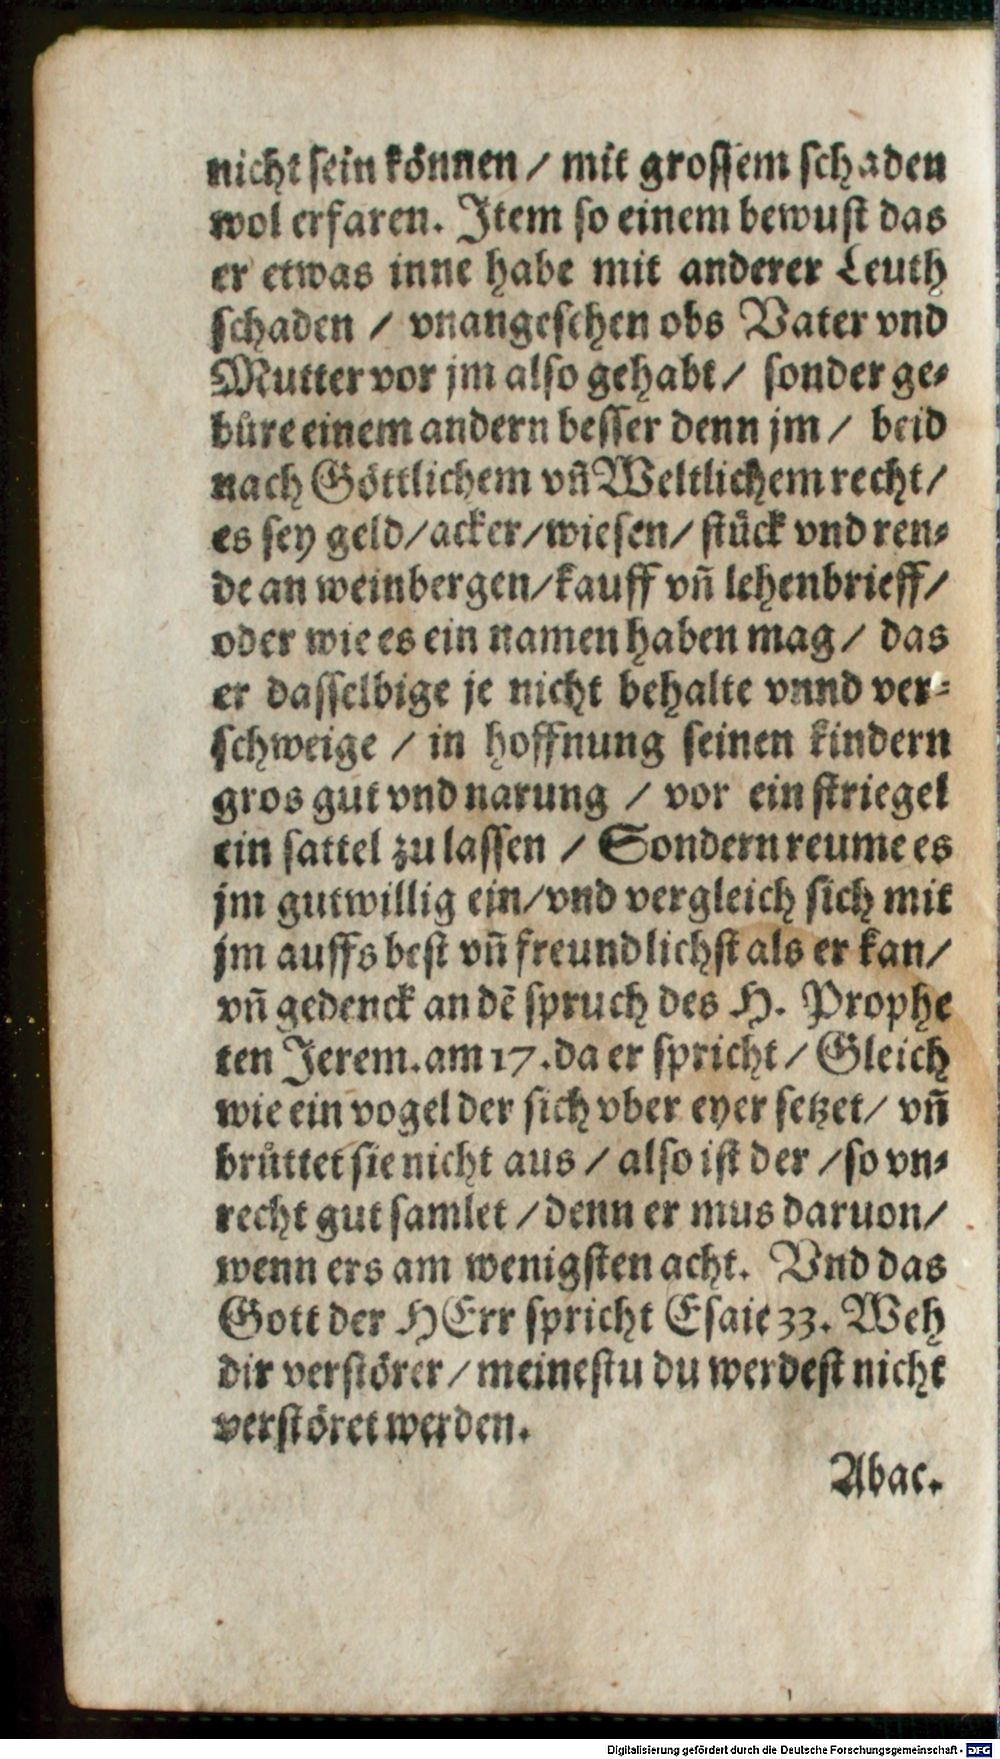 nicht ſein können / mit groſſem ſchaden
wol erfaren. Item ſo einem bewuſt das
er etwas inne habe mit anderer Leuth
ſchaden / vnangeſehen obs Vater vnd
Mutter vor jm alſo gehabt / ſonder ge⸗
bůre einem andern beſſer denn jm / beid
nach Göttlichem vñ Weltlichem recht /
es ſey geld / acker / wieſen / ſtůck vnd ren⸗
de an weinbergen / kauff vñ lehenbrieff /
oder wie es ein namen haben mag / das
er daſſelbige je nicht behalte vnnd ver⸗
ſchweige / in hoffnung ſeinen kindern
gros gut vnd narung / vor ein ſtriegel
ein ſattel zu laſſen / Sondern reume es
jm gutwillig ein / vnd vergleich ſich mit
jm auffs beſt vñ freundlichſt als er kan /
vñ gedenck an dē ſpruch des H. Prophe
ten Jerem. am 17. da er ſpricht / Gleich
wie ein vogel der ſich vber eyer ſetzet / vñ
brůttet ſie nicht aus / alſo iſt der / ſo vn⸗
recht gut ſamlet / denn er mus daruon /
wenn ers am wenigſten acht. Vnd das
Gott der HErr ſpricht Eſaie 33. Weh
dir verſtörer / meineſtu du werdeſt nicht
verſtöret werden.
Abac.
Digitalisierung gefördert durch die Deutsche Forschungsgemeinschaft - DFG